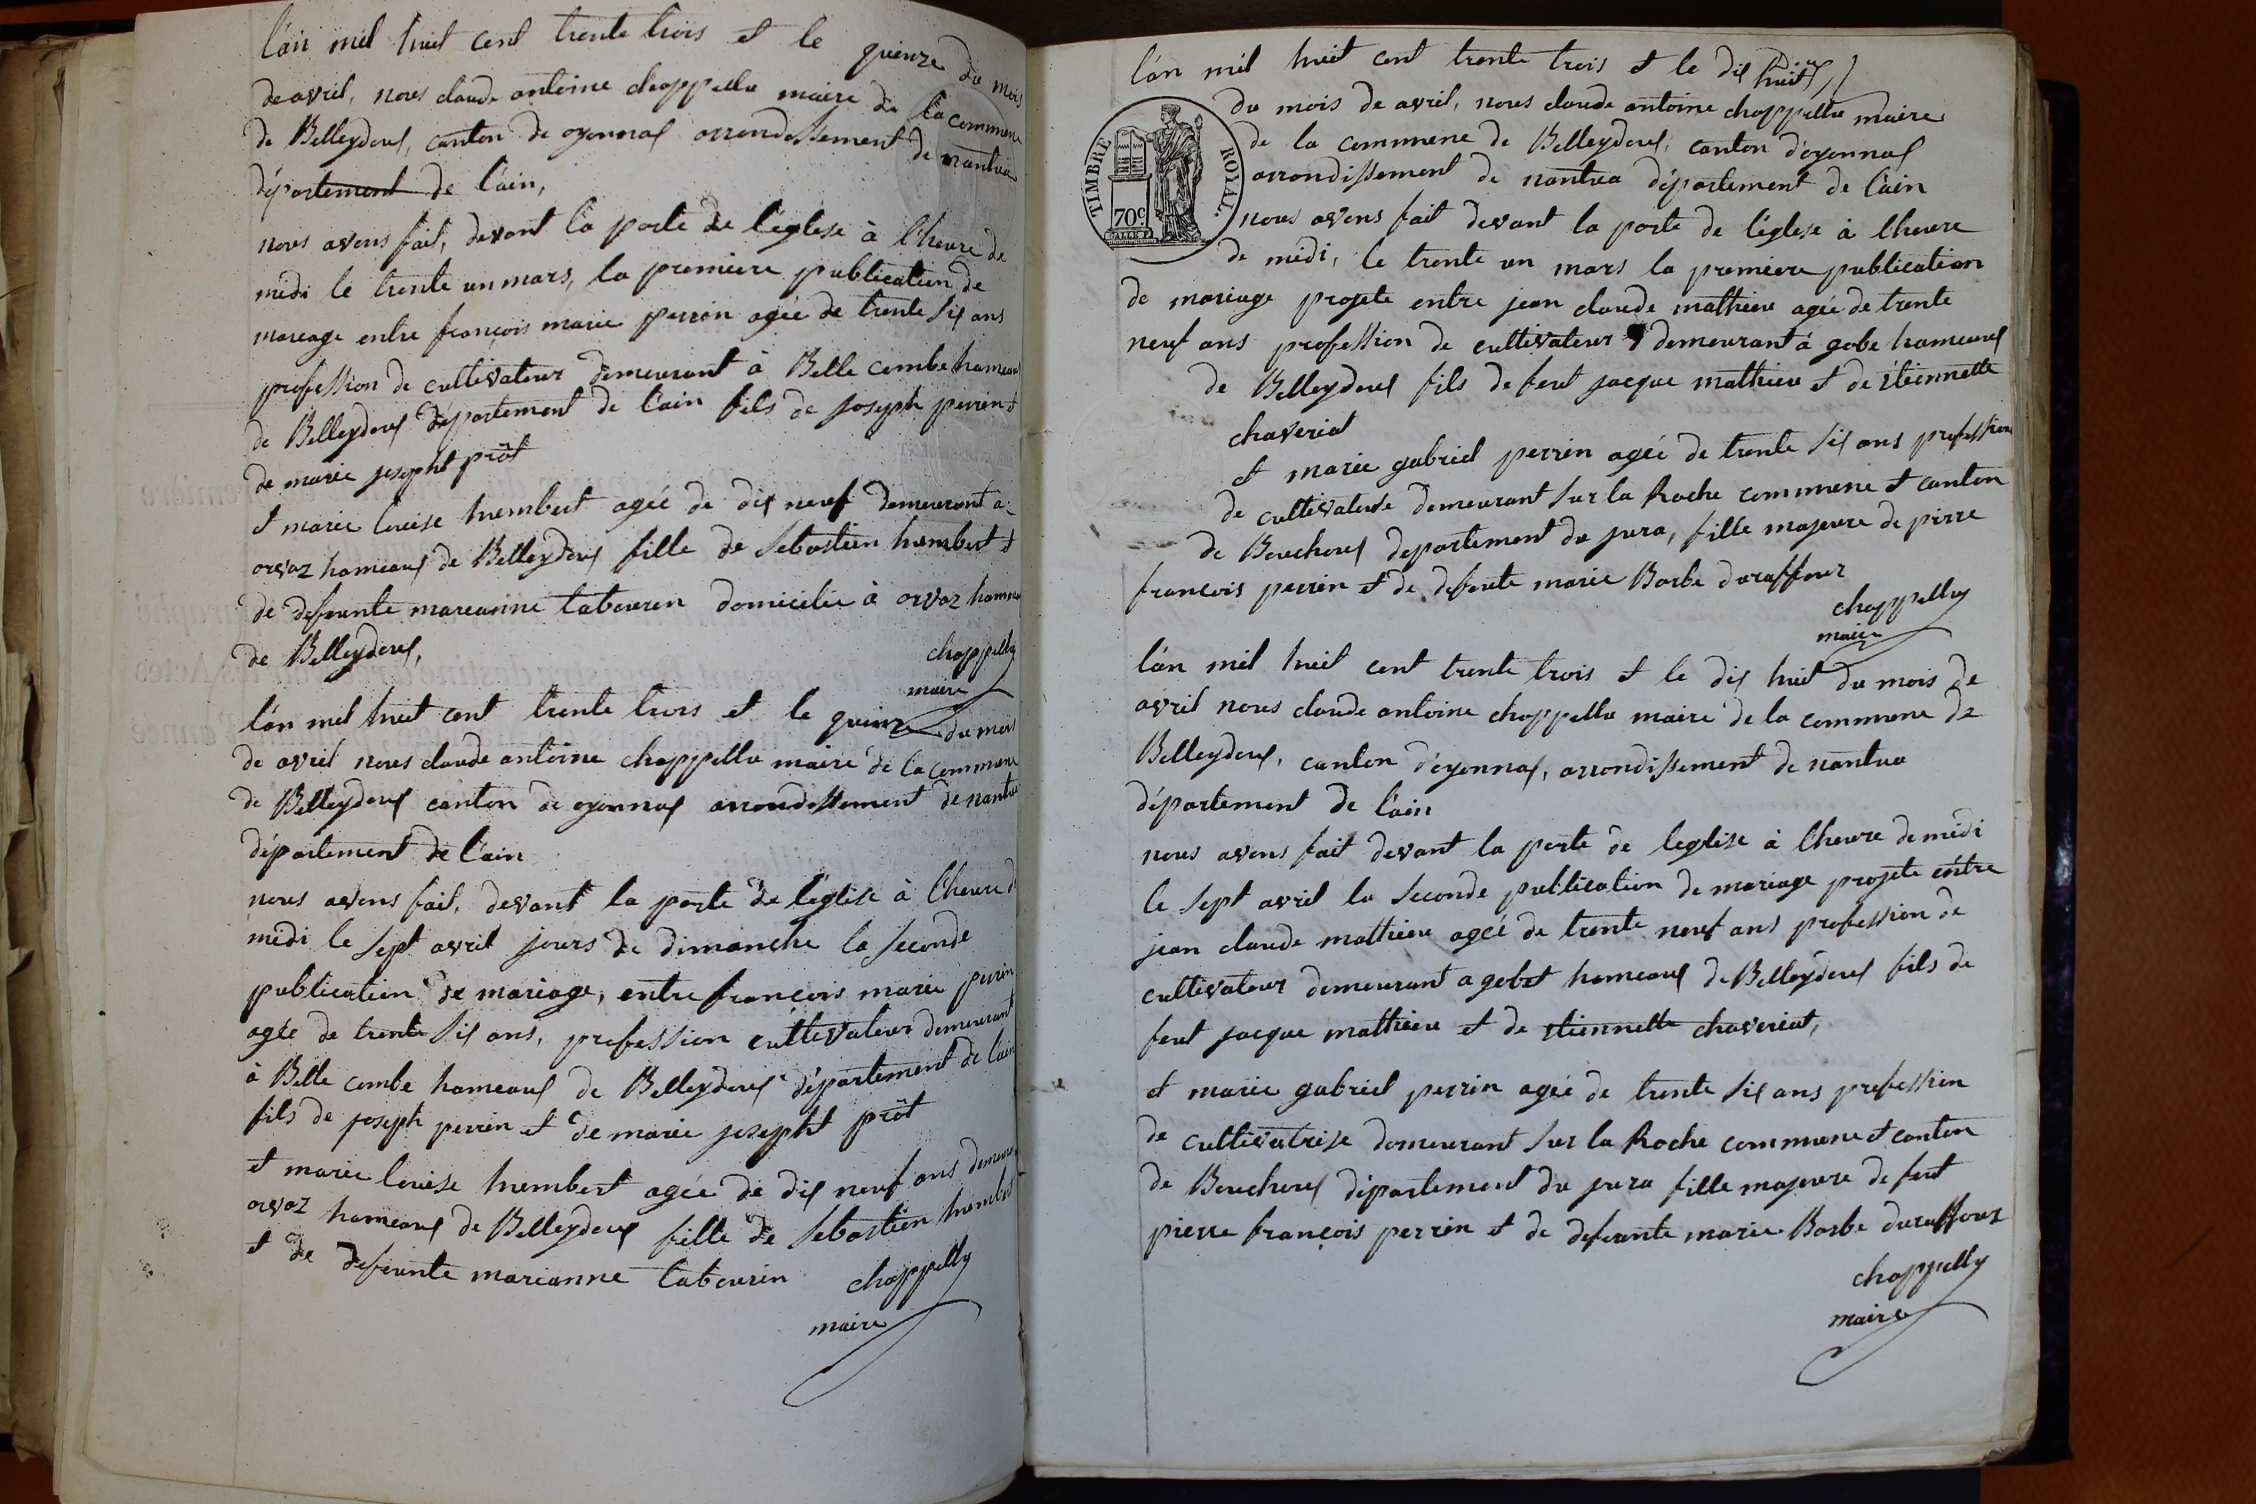 l'an mil huit cent trente trois et le quinze du mois
de avril, nous claude antoine chappellu maire de la commune
de Belleydoux, canton de oyonnax arrondissement de nantua
département de l'ain,
nous avons fait, devant la porte de l'église à l'heure de
midi le trente un mars, la premiere publication de
mareage entre françois marie perrin agée de trente six ans
profession de cultivateur demeurant à Belle combe hameaux
de Belleydoux département de l'ain fils de joseph perrin et
de marie josepht prôt
et marie louise humbert agée de dix neuf demeurant a
orvaz hameaux de Belleydoux fille de sebastien humbert et
de defeunte mareanne tabouren domicilie à orvaz hameau
de Belleydoux,
chappelly
maire
l'an mil huit cent trente trois et le quinze du mois
de avril nous claude antoine chappellu maire de la commune
de Belleydoux canton de oyonnax arrondissement de nantua
département de l'ain
nous avons fait, devant la porte de l'église à l'heure d
midi le sept avril jours de dimanche la seconde
publication de mariage, entre françois marie perrin
agée de trente six ans, profession cultivateur demeurant
à Belle combe hameaux de Belleydoux département de l'ain
fils de joseph perrin et de marie josepht prôt
et marie louise humbert agée de dix neuf ans demeura
orvaz hameaux de Belleydoux fille de sebastien humbert
et de defeunte marianne tabourin
chappelly
maire
l'an mil huit cent trente trois et le dix huit
TIMBRE ROYAL.
70c
du mois de avril, nous claude antoine chappellu maire
de la commune de Belleydoux, canton d'oyonnax
arrondissement de nantua département de l'ain
nous avons fait devant la porte de l'église à l'heure
de midi, le trente un mars la premiere publication
de mariage projete entre jean claude mathieu agée de trente
neuf ans profession de cultivateur demeurant à gobe hameaux
de Belleydoux fils de feut jacque mathieu et de étiennette
chaveriat
et marie gabriel perrin agée de trente six ans profession
de cultivateuse demeurant sur la Roche commune et canton
de Bouchoux departement du jura, fille majeure de pirre
francois perrin et de defeunte marie Barbe duraffour
chappelly
maire
l'an mil huit cent trente trois et le dix huit du mois de
avril nous claude antoine chappellu maire de la commune de
Belleydoux, canton d'oyonnax, arrondissement de nantua
département de l'ain
nous avons fait devant la porte de leglise à l'heure de midi
le sept avril la seconde publication de mariage projete entre
jean claude mathieu agée de trente neuf ans profession de
cultivateur demeurant a gobet hameaux de Belleydoux fils de
feut jacque mathieu et de etiennette chaveriat,
et marie gabriel perrin agée de trente six ans profession
de cultivatrise demeurant sur la Roche commune et canton
de Bouchoux département du jura fille majeure de feut
pierre françois perrin et de defeunte marie Barbe duraffour
chappelly
maire